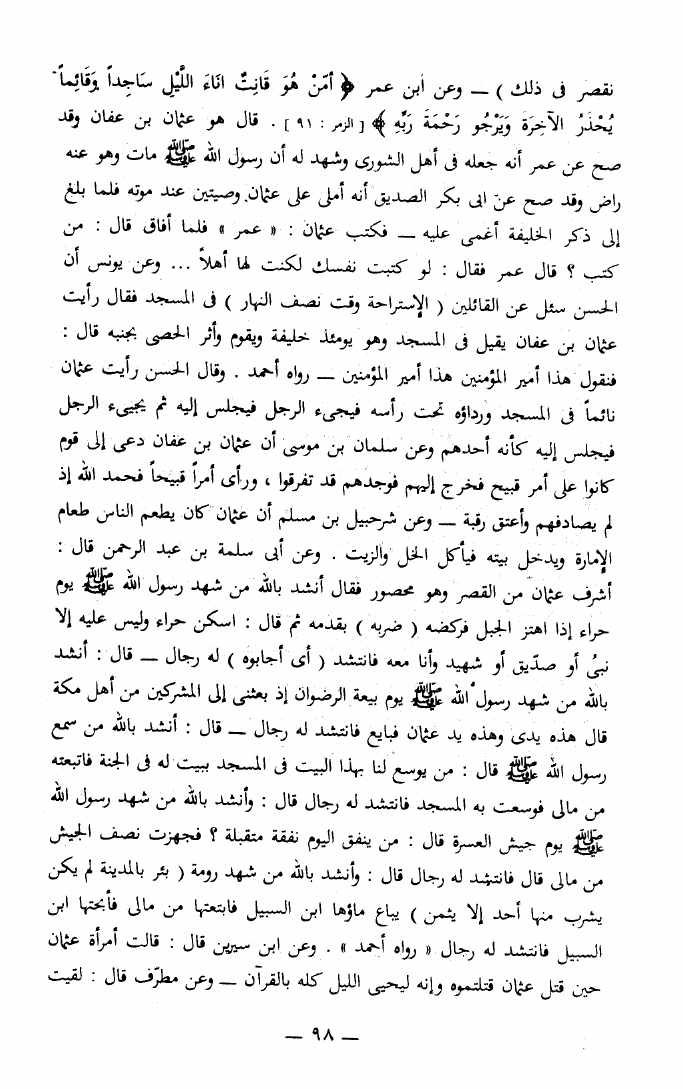 نقصر فى ذلك ) ــ وعن ابن عمر ﴿ أَمّنْ هُوَ قَانِتٌ انَاءَ اللَّيْلِ سَاجِداً وَقَائِماً
يُحْذَرُ الآخِرَة وَيَرْجُو رَحْمَةَ رَبِّهِ ﴾ [ الزمر : ٩١ ] . قال هو عثمان بن عفان وقد
صح عن عمر أنه جعله فى أهل الشورى وشهد له أن رسول الله ﷺ مات وهو عنه
راض وقد صح عن ابى بكر الصديق أنه أملى على عثمان وصيتين عند موته فلما بلغ
إلى ذكر الخليفة أغمى عليه ــ فكتب عثمان : « عمر » فلما أفاق قال : من
كتب ؟ قال عمر فقال : لو كتبت نفسك لكنت لها أهلاً ... وعن يونس أن
الحسن سئل عن القائلين ( الإستراحة وقت نصف النهار ) فى المسجد فقال رأيت
عثمان بن عفان يقيل فى المسجد وهو يومئذ خليفة ويقوم وأثر الحصى بجنبه قال :
فنقول هذا أمير المؤمنين هذا أمير المؤمنين ــ رواه أحمد . وقال الحسن رأيت عثمان
نائماً فى المسجد ورداؤه تحت رأسه فيجىء الرجل فيجلس إليه ثم يجيىء الرجل
فيجلس إليه كأنه أحدهم وعن سلمان بن موسى أن عثمان بن عفان دعى إلى قوم
كانوا على أمر قبيح فخرج إليهم فوجدهم قد تفرقوا ، ورأى أمراً قبيحاً فحمد الله إذ
لم يصادفهم وأعتق رقبة ــ وعن شرحبيل بن مسلم أن عثمان كان يطعم الناس طعام
الإمارة ويدخل بيته فيأكل الخل والزيت . وعن أبى سلمة بن عبد الرحمن قال :
أشرف عثمان من القصر وهو محصور فقال أنشد بالله من شهد رسول الله ﷺ يوم
حراء إذا اهتز الجبل فركضه ( ضربه ) بقدمه ثم قال : اسكن حراء وليس عليه إلا
نبىُ أو صدّيق أو شهيد وأنا معه فانتشد ( أى أجابوه ) له رجال ــ قال : أنشد
بالله من شهد رسول الله ﷺ يوم بيعة الرضوان إذ بعثنى إلى المشركين من أهل مكة
قال هذه يدى وهذه يد عثمان فبايع فانتشد له رجال ــ قال : أنشد بالله من سمع
رسول الله ﷺ قال : من يوسع لنا بهذا البيت فى المسجد ببيت له فى الجنة فاتبعته
من مالى فوسعت به المسجد فانتشد له رجال قال : وأنشد بالله من شهد رسول الله
ﷺ يوم جيش العسرة قال : من ينفق اليوم نفقة متقبلة ؟ فجهزت نصف الجيش
من مالى قال فانتشد له رجال قال : وأنشد بالله من شهد رومة ( بئر بالمدينة لم يكن
يشرب منها أحد إلا يثمن ) يباع ماؤها ابن السبيل فابتعتها من مالى فأبحتها ابن
السبيل فانتشد له رجال « رواه أحمد » . وعن ابن سيرين قال : قالت أمرأة عثمان
حين قتل عثمان قتلتموه وإنه ليحيى الليل كله بالقرآن ــ وعن مطرّف قال : لقيت
ــ ٩٨ ــ